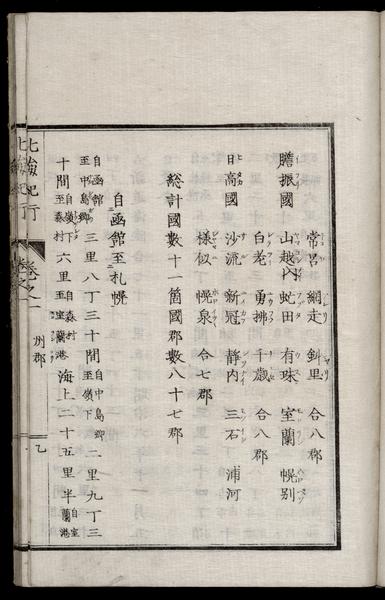 常呂 網走 斜里 合八郡
膽振國 山越内 虻田 有珠 室蘭 幌別
白老 勇拂 千歳 合八郡
日高國 沙流 新冠 靜内 三石 浦河
様似 幌泉 合七郡
總計國數十一箇國郡數八十七郡
自函館至札幌
自函館至中島郷 三里八丁三十間 自中島郷至嶺下 二里九丁三
十間 自嶺下至森村 六里 自森村至室蘭港 海上二十五里半 自室蘭港
北海紀行 卷之一 州郡 乙